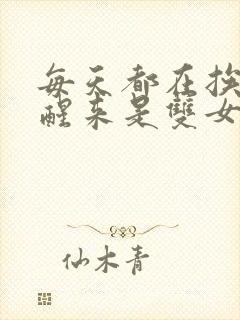 每天都在挨
醒来是雙女
仙木青